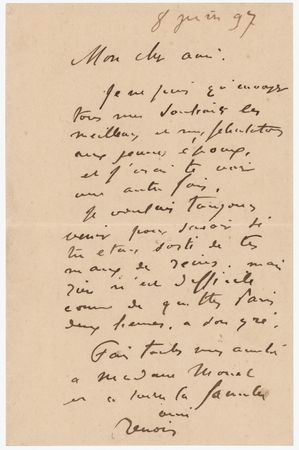 8 juin 97
Mon cher ami.
Je ne puis qu'envoyer
tous mes souhaits les
meilleurs et mes félicitations
aux jeunes époux,
et j'irai te voir
une autre fois.
Je voulais toujours
venir pour savoir si
tu etais sorti de tes
maux de reins. mais
rien n'est difficile
comme de quitter Paris
deux heures, a son gré.
Fais toutes mes amitiés
a Madame Monet
et a toute la famille
ami
Renoir